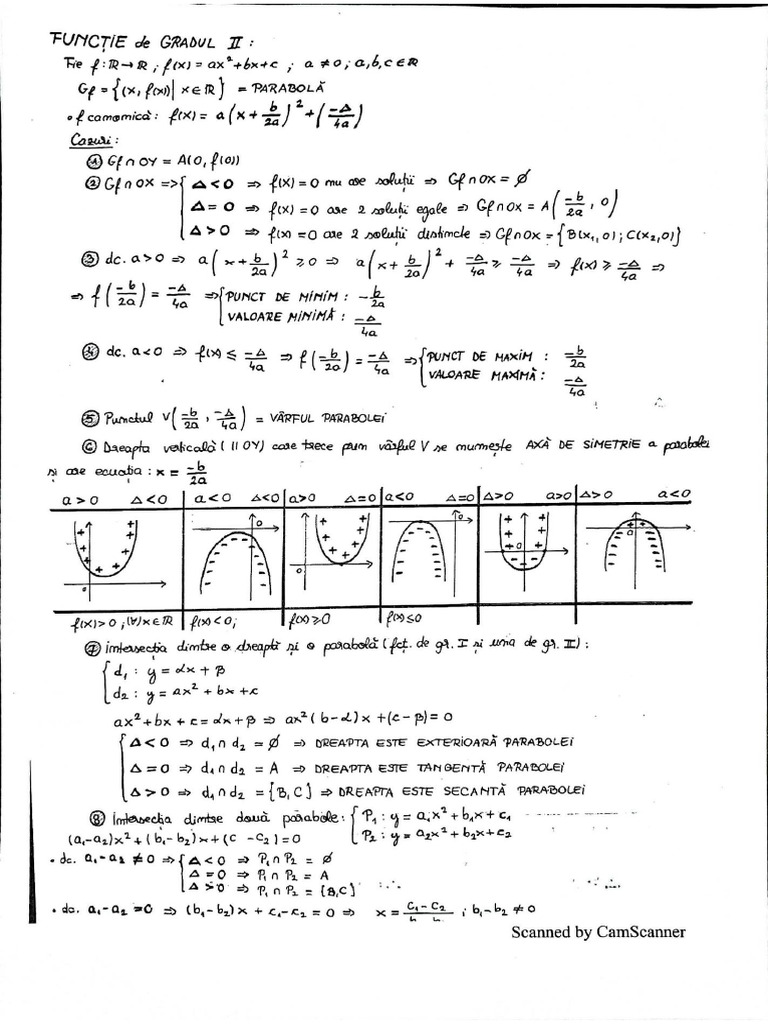 FUNCȚIE de GRADUL II :
Fie f:ℝ→ℝ ; f(x) = ax²+bx+c ; a≠0 ; a,b,c∈ℝ
Gf = {(x, f(x)) | x∈ℝ} = PARABOLĂ
• f canonică: f(x) = a(x + b/2a)² + (-Δ/4a)
Cazuri:
① Gf∩OY = A(0, f(0))
② Gf∩OX => { Δ<0 => f(x)=0 nu are soluții => Gf∩OX = ∅
Δ=0 => f(x)=0 are 2 soluții egale => Gf∩OX = A(-b/2a, 0)
Δ>0 => f(x)=0 are 2 soluții distincte => Gf∩OX = {B(x₁,0); C(x₂,0)}
③ dc. a>0 => a(x + b/2a)² ≥ 0 => a(x + b/2a)² + -Δ/4a ≥ -Δ/4a => f(x) ≥ -Δ/4a =>
=> f(-b/2a) = -Δ/4a => { PUNCT DE MINIM : -b/2a
VALOARE MINIMĂ : -Δ/4a
④ dc. a<0 => f(x) ≤ -Δ/4a => f(-b/2a) = -Δ/4a => { PUNCT DE MAXIM : -b/2a
VALOARE MAXIMĂ : -Δ/4a
⑤ Punctul V(-b/2a, -Δ/4a) = VÂRFUL PARABOLEI
⑥ Dreapta verticală (|| OY) care trece prin vârful V se numește AXĂ DE SIMETRIE a parabolei
și are ecuația : x = -b/2a
a>0 Δ<0 a<0 Δ<0 a>0 Δ=0 a<0 Δ=0 Δ>0 a>0 Δ>0 a<0
f(x)>0 ; (∀)x∈ℝ f(x)<0; f(x)≥0 f(x)≤0
⑦ intersecția dintre o dreaptă și o parabolă (fcț. de gr. I și una de gr. II) :
{ d₁ : y = αx + β
d₂ : y = ax² + bx + c
ax²+bx+c = αx+β => ax²(b-α)x + (c-β) = 0
{ Δ<0 => d₁∩d₂ = ∅ => DREAPTA ESTE EXTERIOARĂ PARABOLEI
Δ=0 => d₁∩d₂ = A => DREAPTA ESTE TANGENTĂ PARABOLEI
Δ>0 => d₁∩d₂ = {B,C} => DREAPTA ESTE SECANTĂ PARABOLEI
⑧ Intersecția dintre două parabole: { P₁ : y = a₁x² + b₁x + c₁
(a₁-a₂)x² + (b₁-b₂)x + (c -c₂) = 0 P₂ : y = a₂x² + b₂x + c₂
• dc. a₁-a₂ ≠ 0 => { Δ<0 => P₁∩P₂ = ∅
Δ=0 => P₁∩P₂ = A
Δ>0 => P₁∩P₂ = {B,C}
• dc. a₁-a₂ = 0 => (b₁-b₂)x + c₁-c₂ = 0 => x = c₁-c₂ ; b₁-b₂ ≠ 0
Scanned by CamScanner